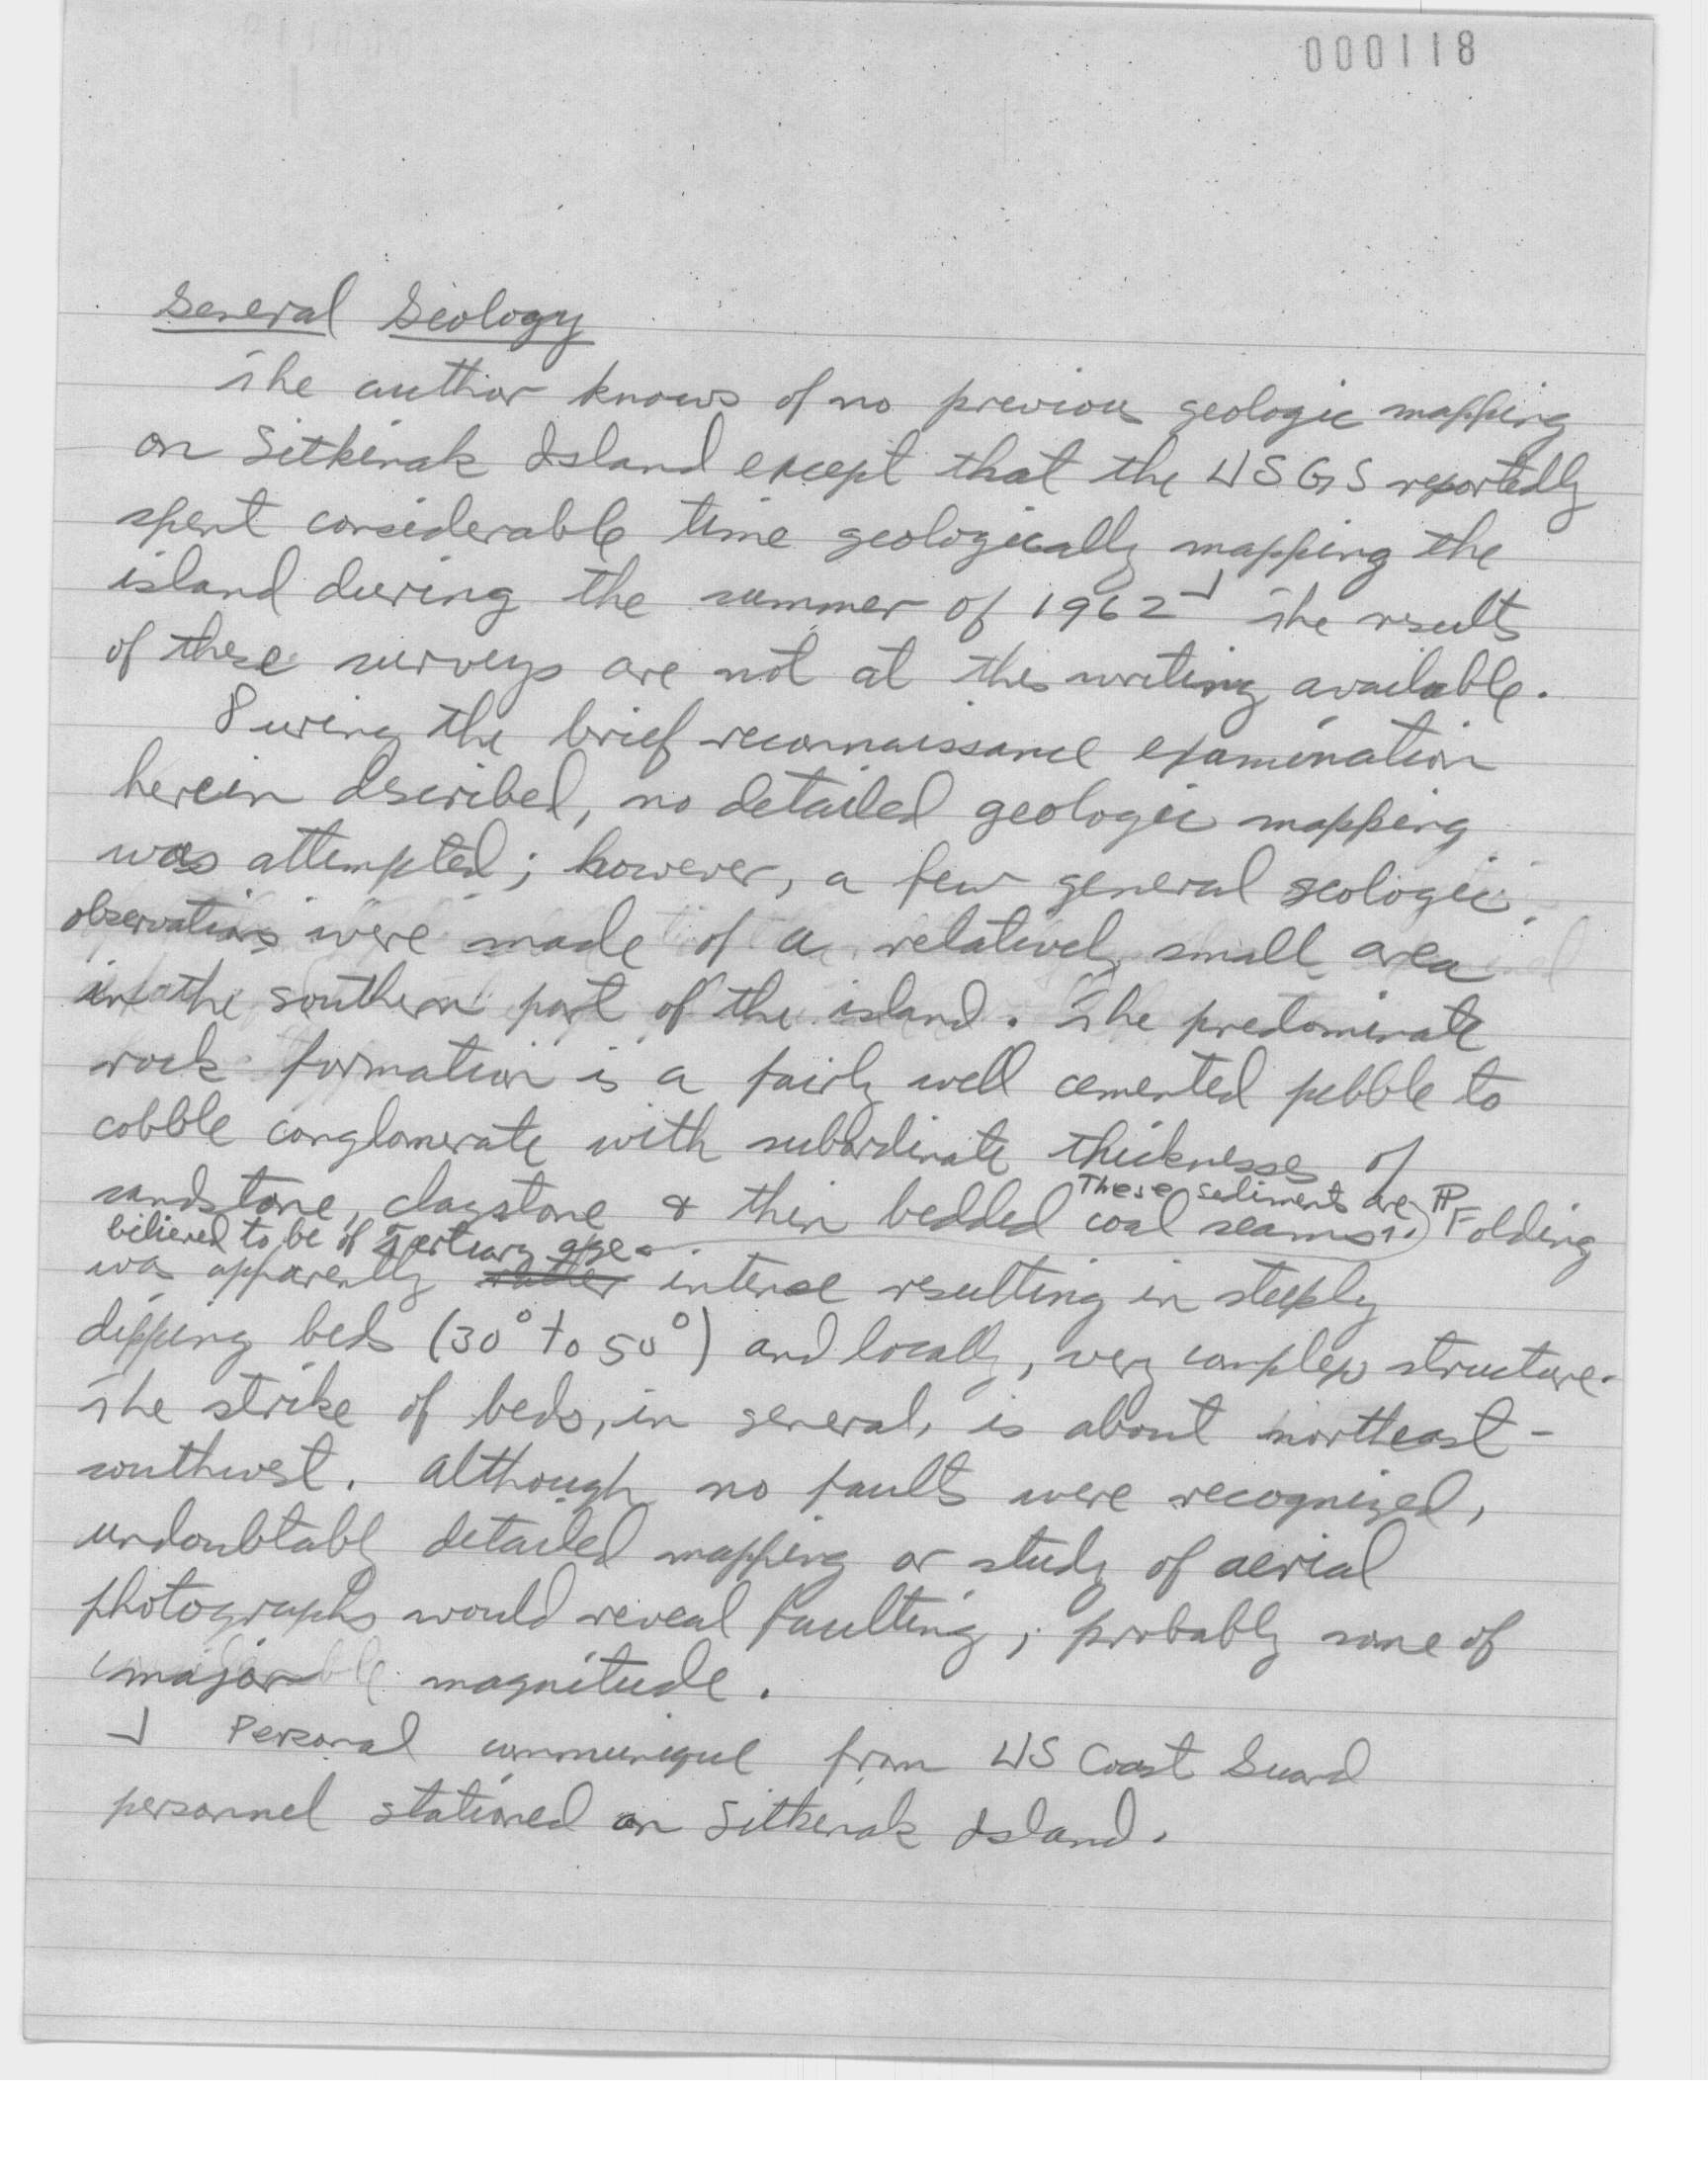 000118
General Geology
The author knows of no previous geologic mapping
on Sitkinak Island except that the USGS reportedly
spent considerable time geologically mapping the
island during the summer of 1962 ⅃ The results
of these surveys are not at this writing available.
During the brief reconnaissance examination
herein dscribed, no detailed geologic mapping
was attempted; however, a few general geologic
observations were made of a relatively small area
in the southern part of the island. The predominate
rock formation is a fairly well cemented pebble to
cobble conglomerate with subordinate thicknesses of
sandstone, claystone & thin bedded coal seams. Folding
These sediments are
believed to be of Tertiary age.
was apparently rather intense resulting in steeply
dipping beds (30° to 50°) and locally, very complex structure.
The strike of beds, in general, is about northeast-
southwest. Although no faults were recognized,
undoubtably detailed mapping or study of aerial
photographs would reveal faulting; probably some of
major magnitude.
⅃ Personal communique from US Coast Guard
personnel stationed on Sitkinak Island.